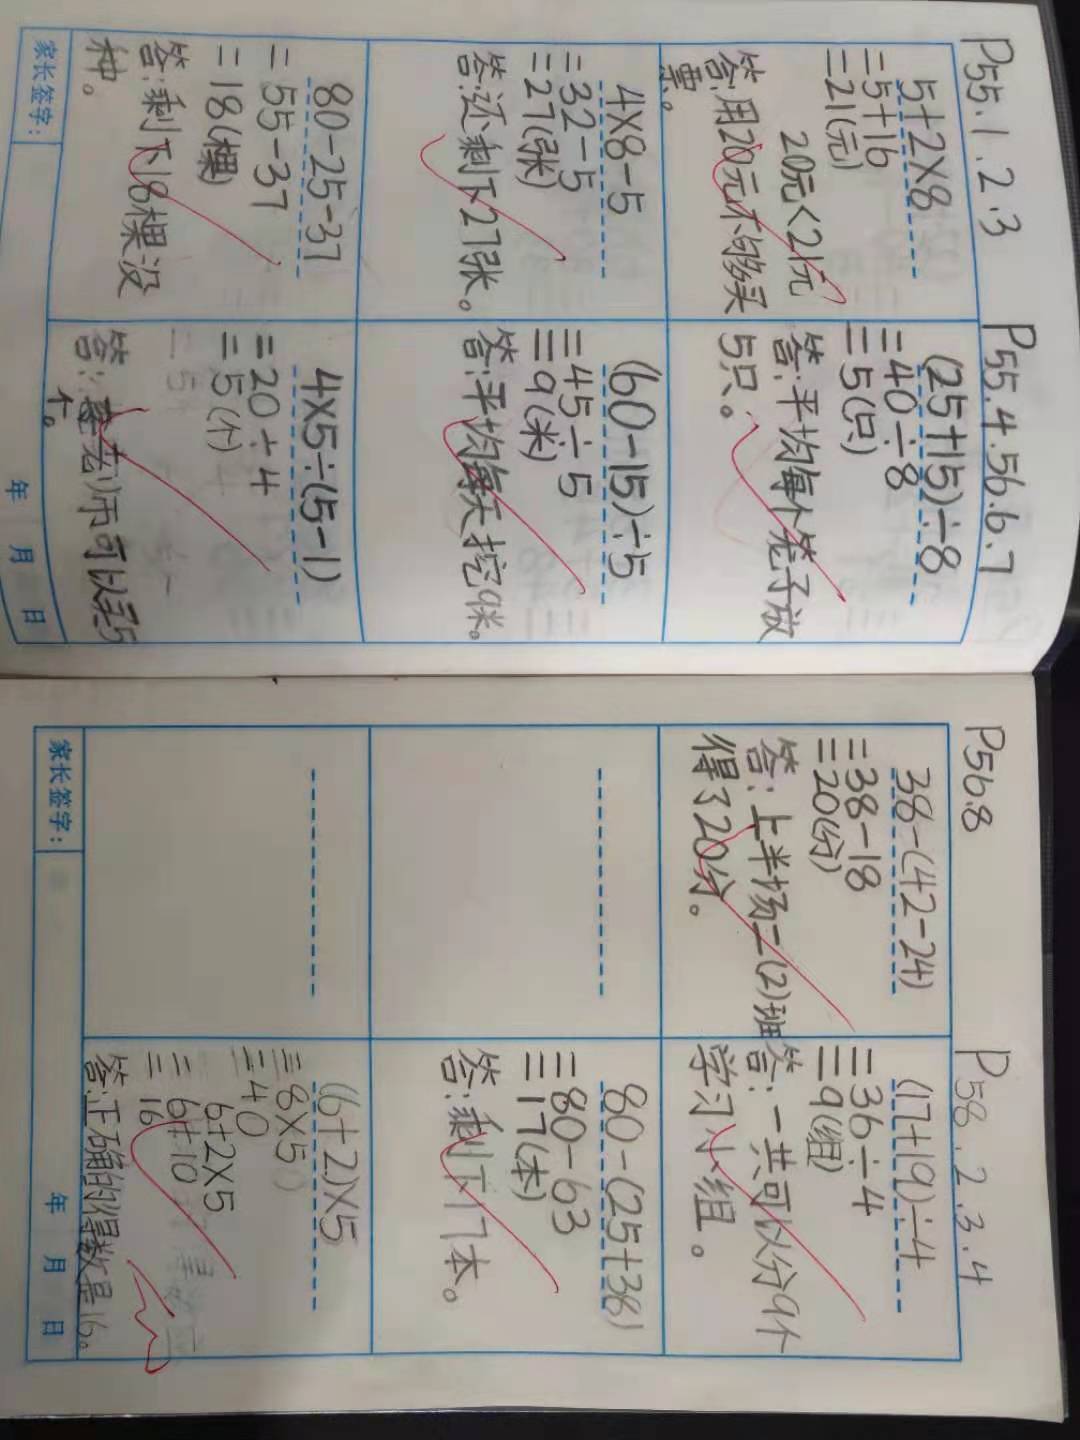 P55.1.2.3
5+2×8
=5+16
=21(元)
20元<21元
答:用20元不够买
票。
4×8-5
=32-5
=27(张)
答:还剩下27张。
80-25-37
=55-37
=18(棵)
答:剩下18棵没
种。
家长签字:
P55.4.56.6.7
(25+15)÷8
=40÷8
=5(只)
答:平均每个笼子放
5只。
(60-15)÷5
=45÷5
=9(米)
答:平均每天挖9米。
4×5÷(5-1)
=20÷4
=5(个)
答:老师可以买5
个。
年 月 日
P56.8
38-(42-24)
=38-18
=20(分)
答:上半场二(2)班
得了20分。
家长签字:
P58.2.3.4
(17+19)÷4
=36÷4
=9(组)
答:一共可以分9个
学习小组。
80-(25+38)
=80-63
=17(本)
答:剩下17本。
(6+2)×5
=8×5
=40
6+2×5
=6+10
=16
答:正确的得数是16。
年 月 日